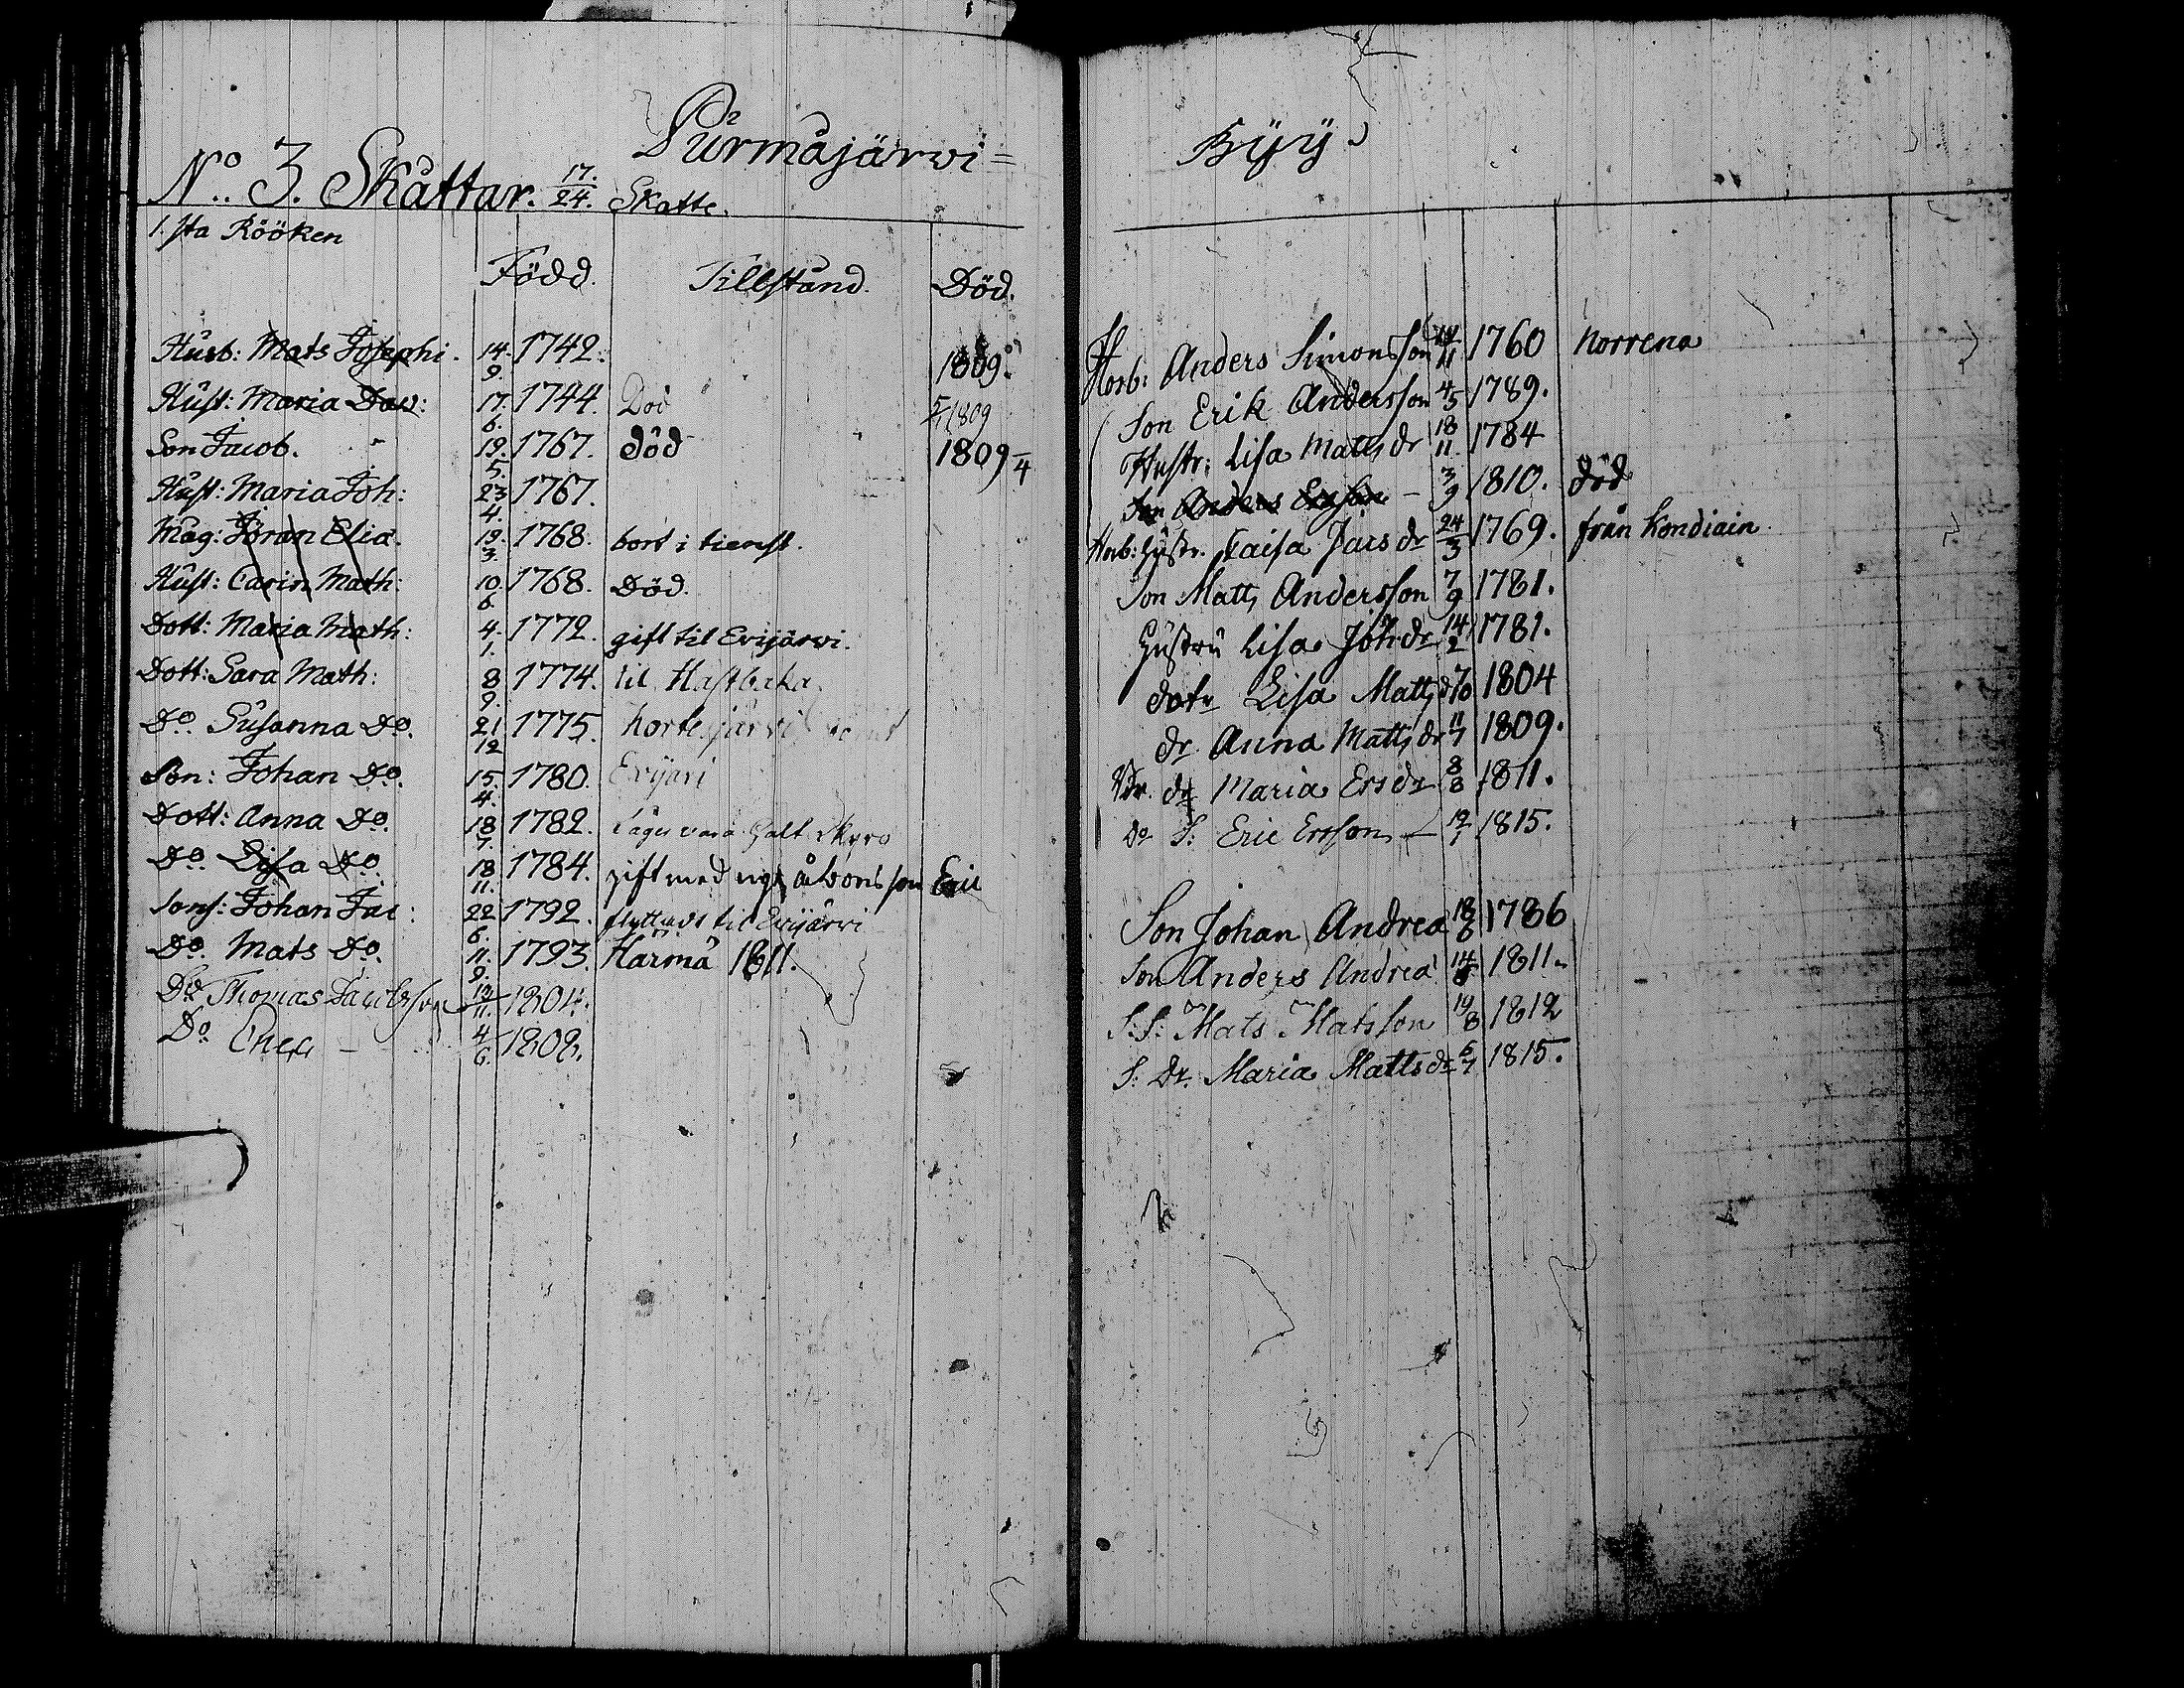 Purmåjärvi=
No. 3. Skattar. 17./24. Skatte.
1.sta Rööken
Född. Tillstånd. Död.
Husb: Mats Josephi. 14./9. 1742. 1809.
Hust: Maria Dav: 17./6. 1744. Död 5/1 1809
Son Jacob. 19./5. 1767. död 1809 /4
Hust: Maria Joh: 23/4. 1767.
Måg: Jöran Elia. 19./3. 1768. bort i tienst.
Hust: Carin Math: 10./6. 1768. Död.
Dott: Maria Math: 4./1. 1772. gift til Evijärvi.
Dott: Sara Math: 8/9. 1774. til Hästbaka
Do. Susanna Do. 21/12 1775. Kortesjärvi
Son: Johan Do. 15./4. 1780. Evijärvi
Dott: Anna Do. 18/7. 1782. Kyro
Do. Lisa Do. 18/11. 1784. gift med åbons son Eric
Sons: Johan Jac: 22/6. 1792. flyttade til Evijärvi
Do. Mats Do. 11./9. 1793. Härmä 1811.
Do Thomas Jacobsson /11. 1804.
Do 4/6. 1808.
Byÿ
Husb: Anders Simonsson 11 1760 Norrena
Son Erik Andersson 4/5 1789.
Hustr: Lisa Matts dr 18/11. 1784
Son Anders Ersson – 3/9 1810. död
Husb: Hustr. Caisa Jacs dr 24/3 1769. från Kondiain.
Son Matts Andersson 7/9 1781.
Hustru Lisa Joh dr 14/2 1781.
dotr Lisa Matts d 7/10 1804
dr. Anna Matts dr 11/7 1809.
dr Maria Ers dr 8/8 1811.
Do S: Eric Ersson – 19/1 1815.
Son Johan Andrea 18/8 1786
Son Anders Andrea 14/ 1811.
S:S: Mats Matsson 19/8 1812
S: Dr. Maria Matts dr 6/7 1815.